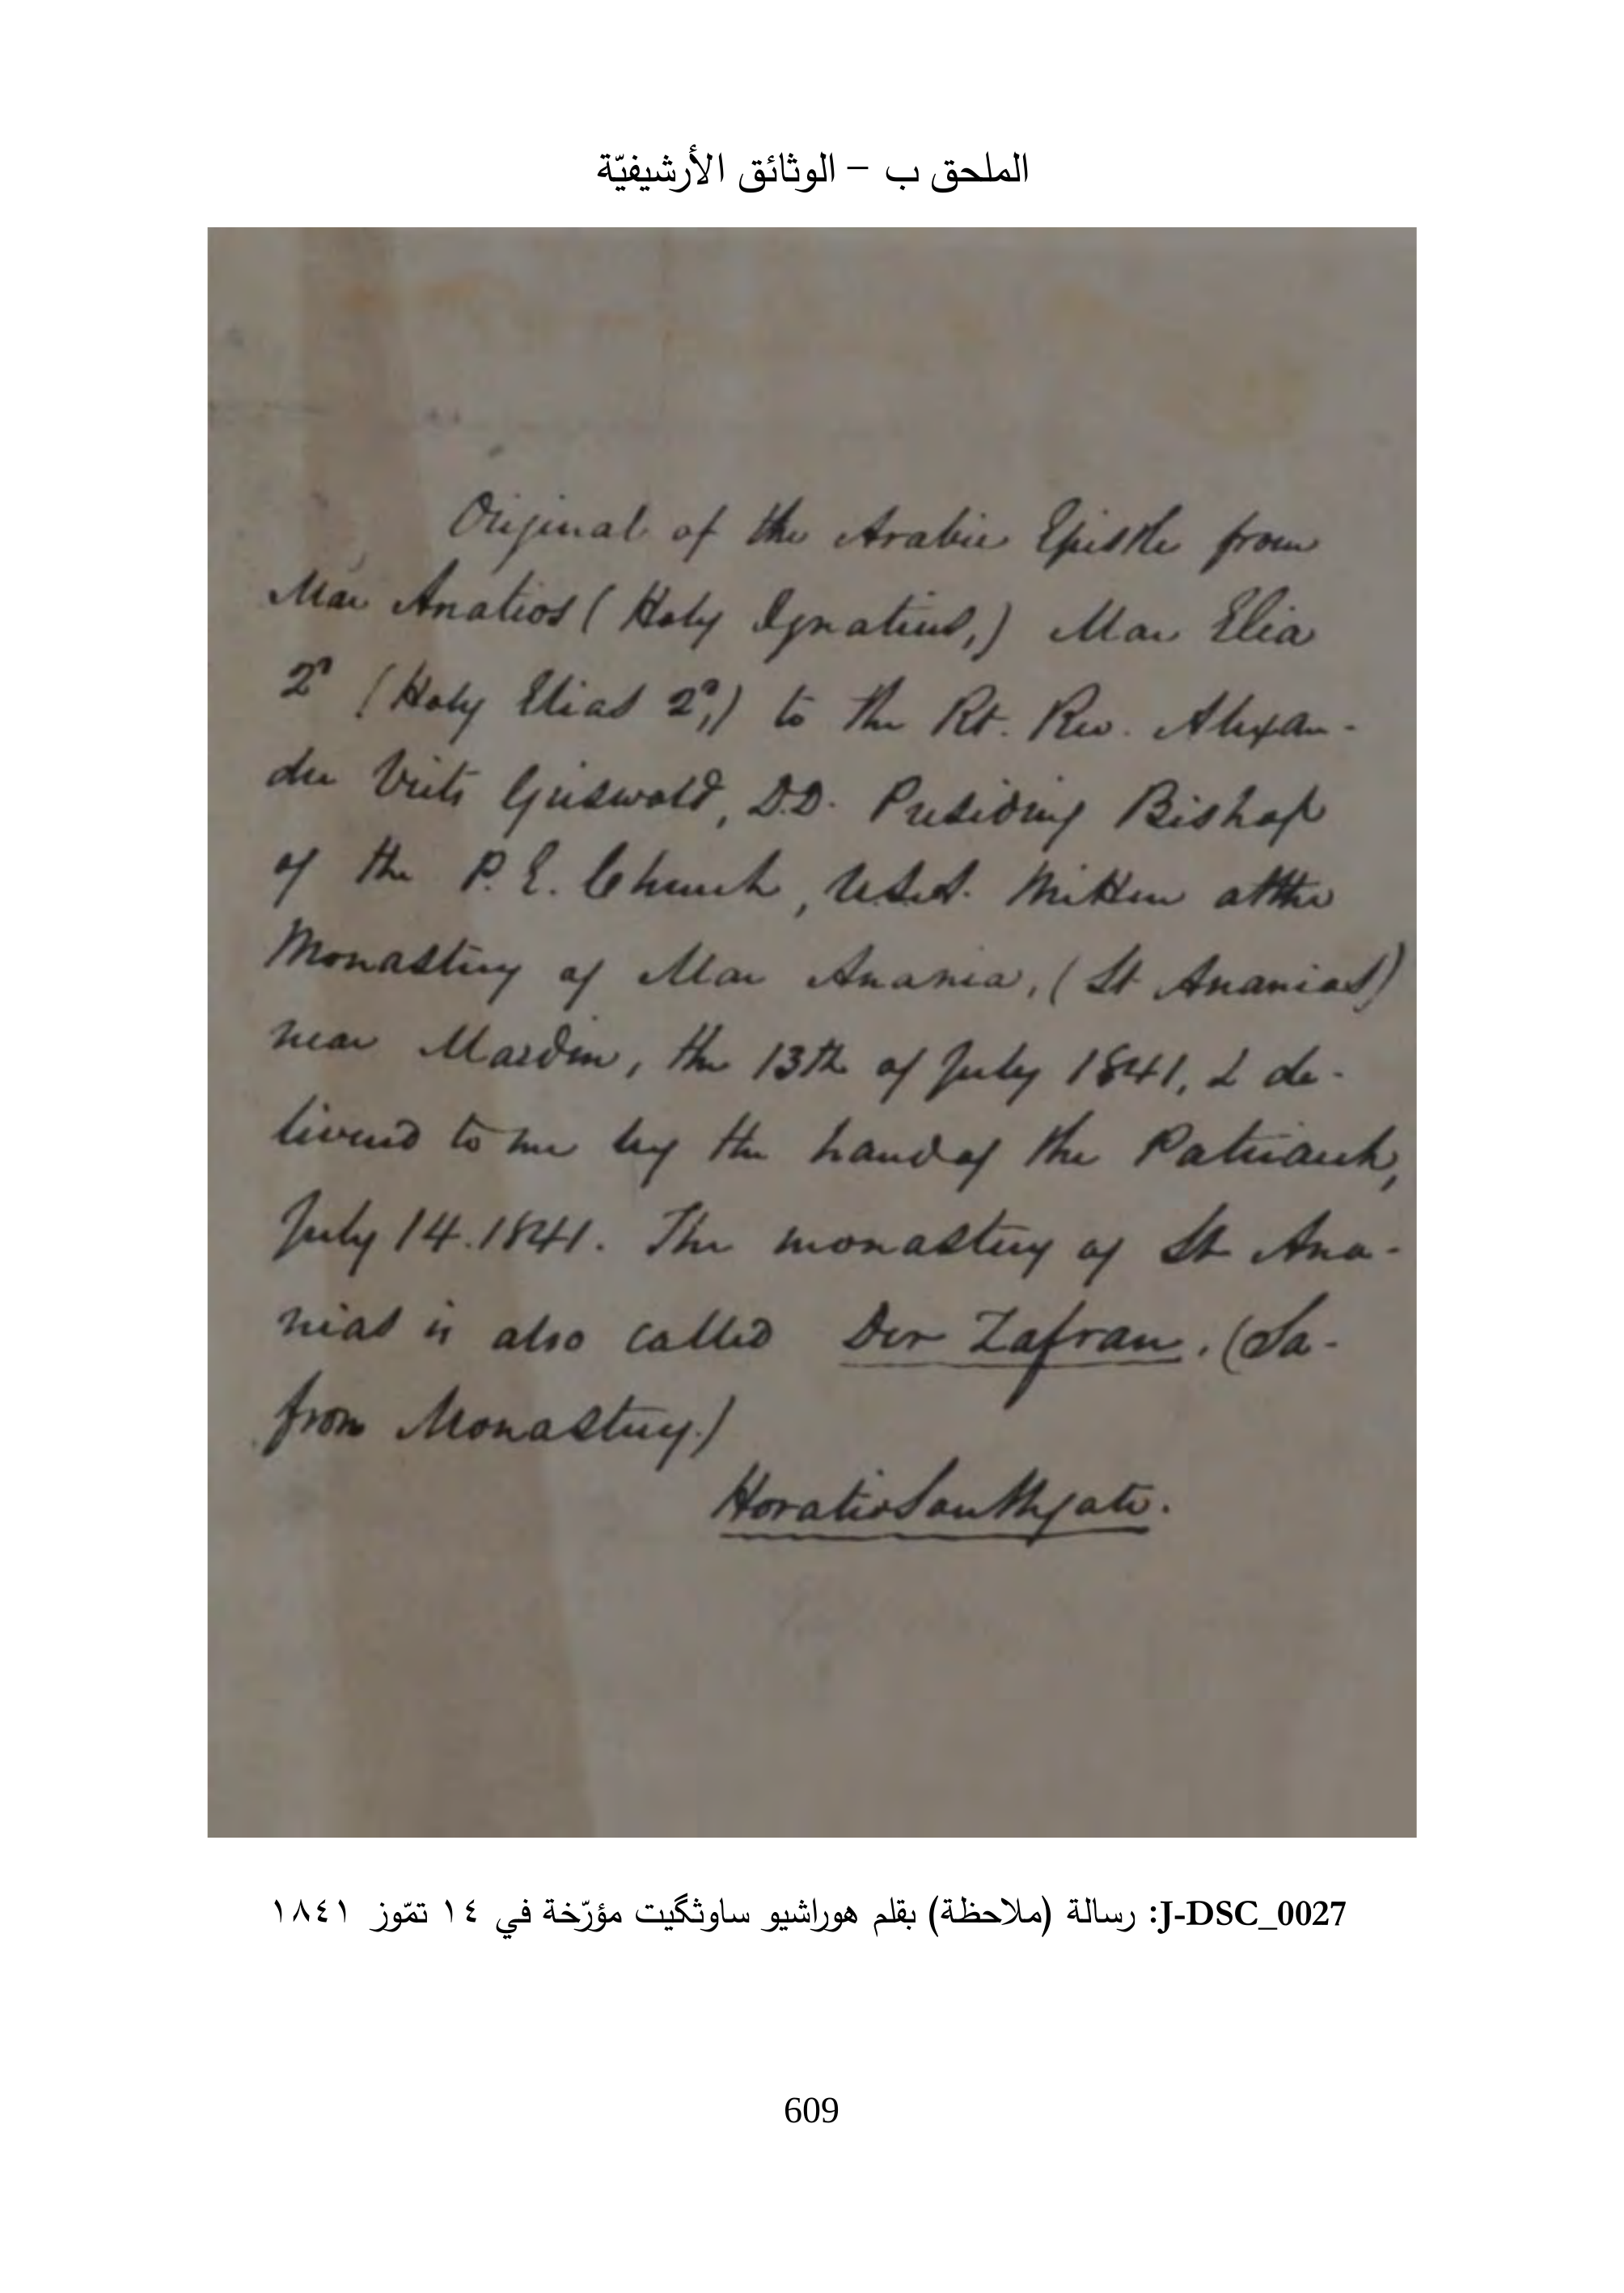 الملحق ب – الوثائق الأرشيفيّة
Original of the Arabic Epistle from
Mar Anatios (Holy Ignatius,) Mar Elia
2º (Holy Elias 2º,) to the Rt. Rev. Alexan-
der Viets Griswold, D.D. Presiding Bishop
of the P. E. Church, U.S.A. Written at the
Monastery of Mar Anania, (St Ananias)
near Mardin, the 13th of July 1841, & de-
livered to me by the hand of the Patriarch,
July 14. 1841. The monastery of St Ana-
nias is also called Der Zafran. (Sa-
fron Monastery.)
Horatio Southgate.
J-DSC_0027: رسالة (ملاحظة) بقلم هوراشيو ساوثگيت مؤرّخة في ١٤ تمّوز ١٨٤١
609